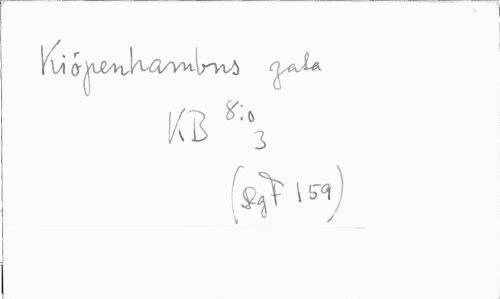 Kiöpenhambns gata
KB 8:o
3
(SgF 159)